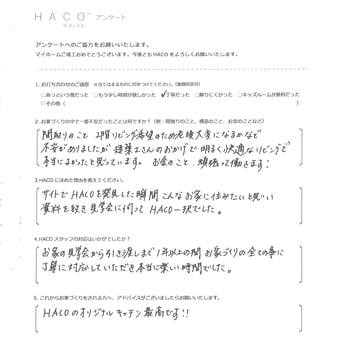 HACO™ アンケート
アンケートへのご協力をお願いいたします。
マイホームご竣工おめでとうございます。今後ともHACOをよろしくお願いいたします。
1. お打ち合わせのご感想 ※当てはまるものに印をつけてください。(複数回答可)
□あっという間だった □もう少し時間が欲しかった ✓丁寧だった □解りにくかった □キッズルームが便利だった
□その他(
2. お家づくりの中で一番不安だったことは何ですか?(例:間取りのこと、構造のこと、お金のことなど)
間取りのこと 2階リビング希望のため老後大変になるかなど
不安がありましたが 建築士さんのおかげで 明るく快適なリビングで
本当によかったと思っています。 お金のこと 頑張って働きます!
3.HACOに決めた理由を教えてください。
サイトでHACOを発見した瞬間 こんなお家に住みたいと思い
資料を頂き見学会に伺って HACO一択でした。
4.HACOスタッフの対応はいかがでしたか?
お家の見学会から引き渡しまで1年以上の間 お家づくりの全ての事に
丁寧に対応していただき本当に楽しい時間でした。
5. これからお家づくりをされる方へ、アドバイスがございましたらお願いいたします。
HACOのオリジナルキッチン最高です!!